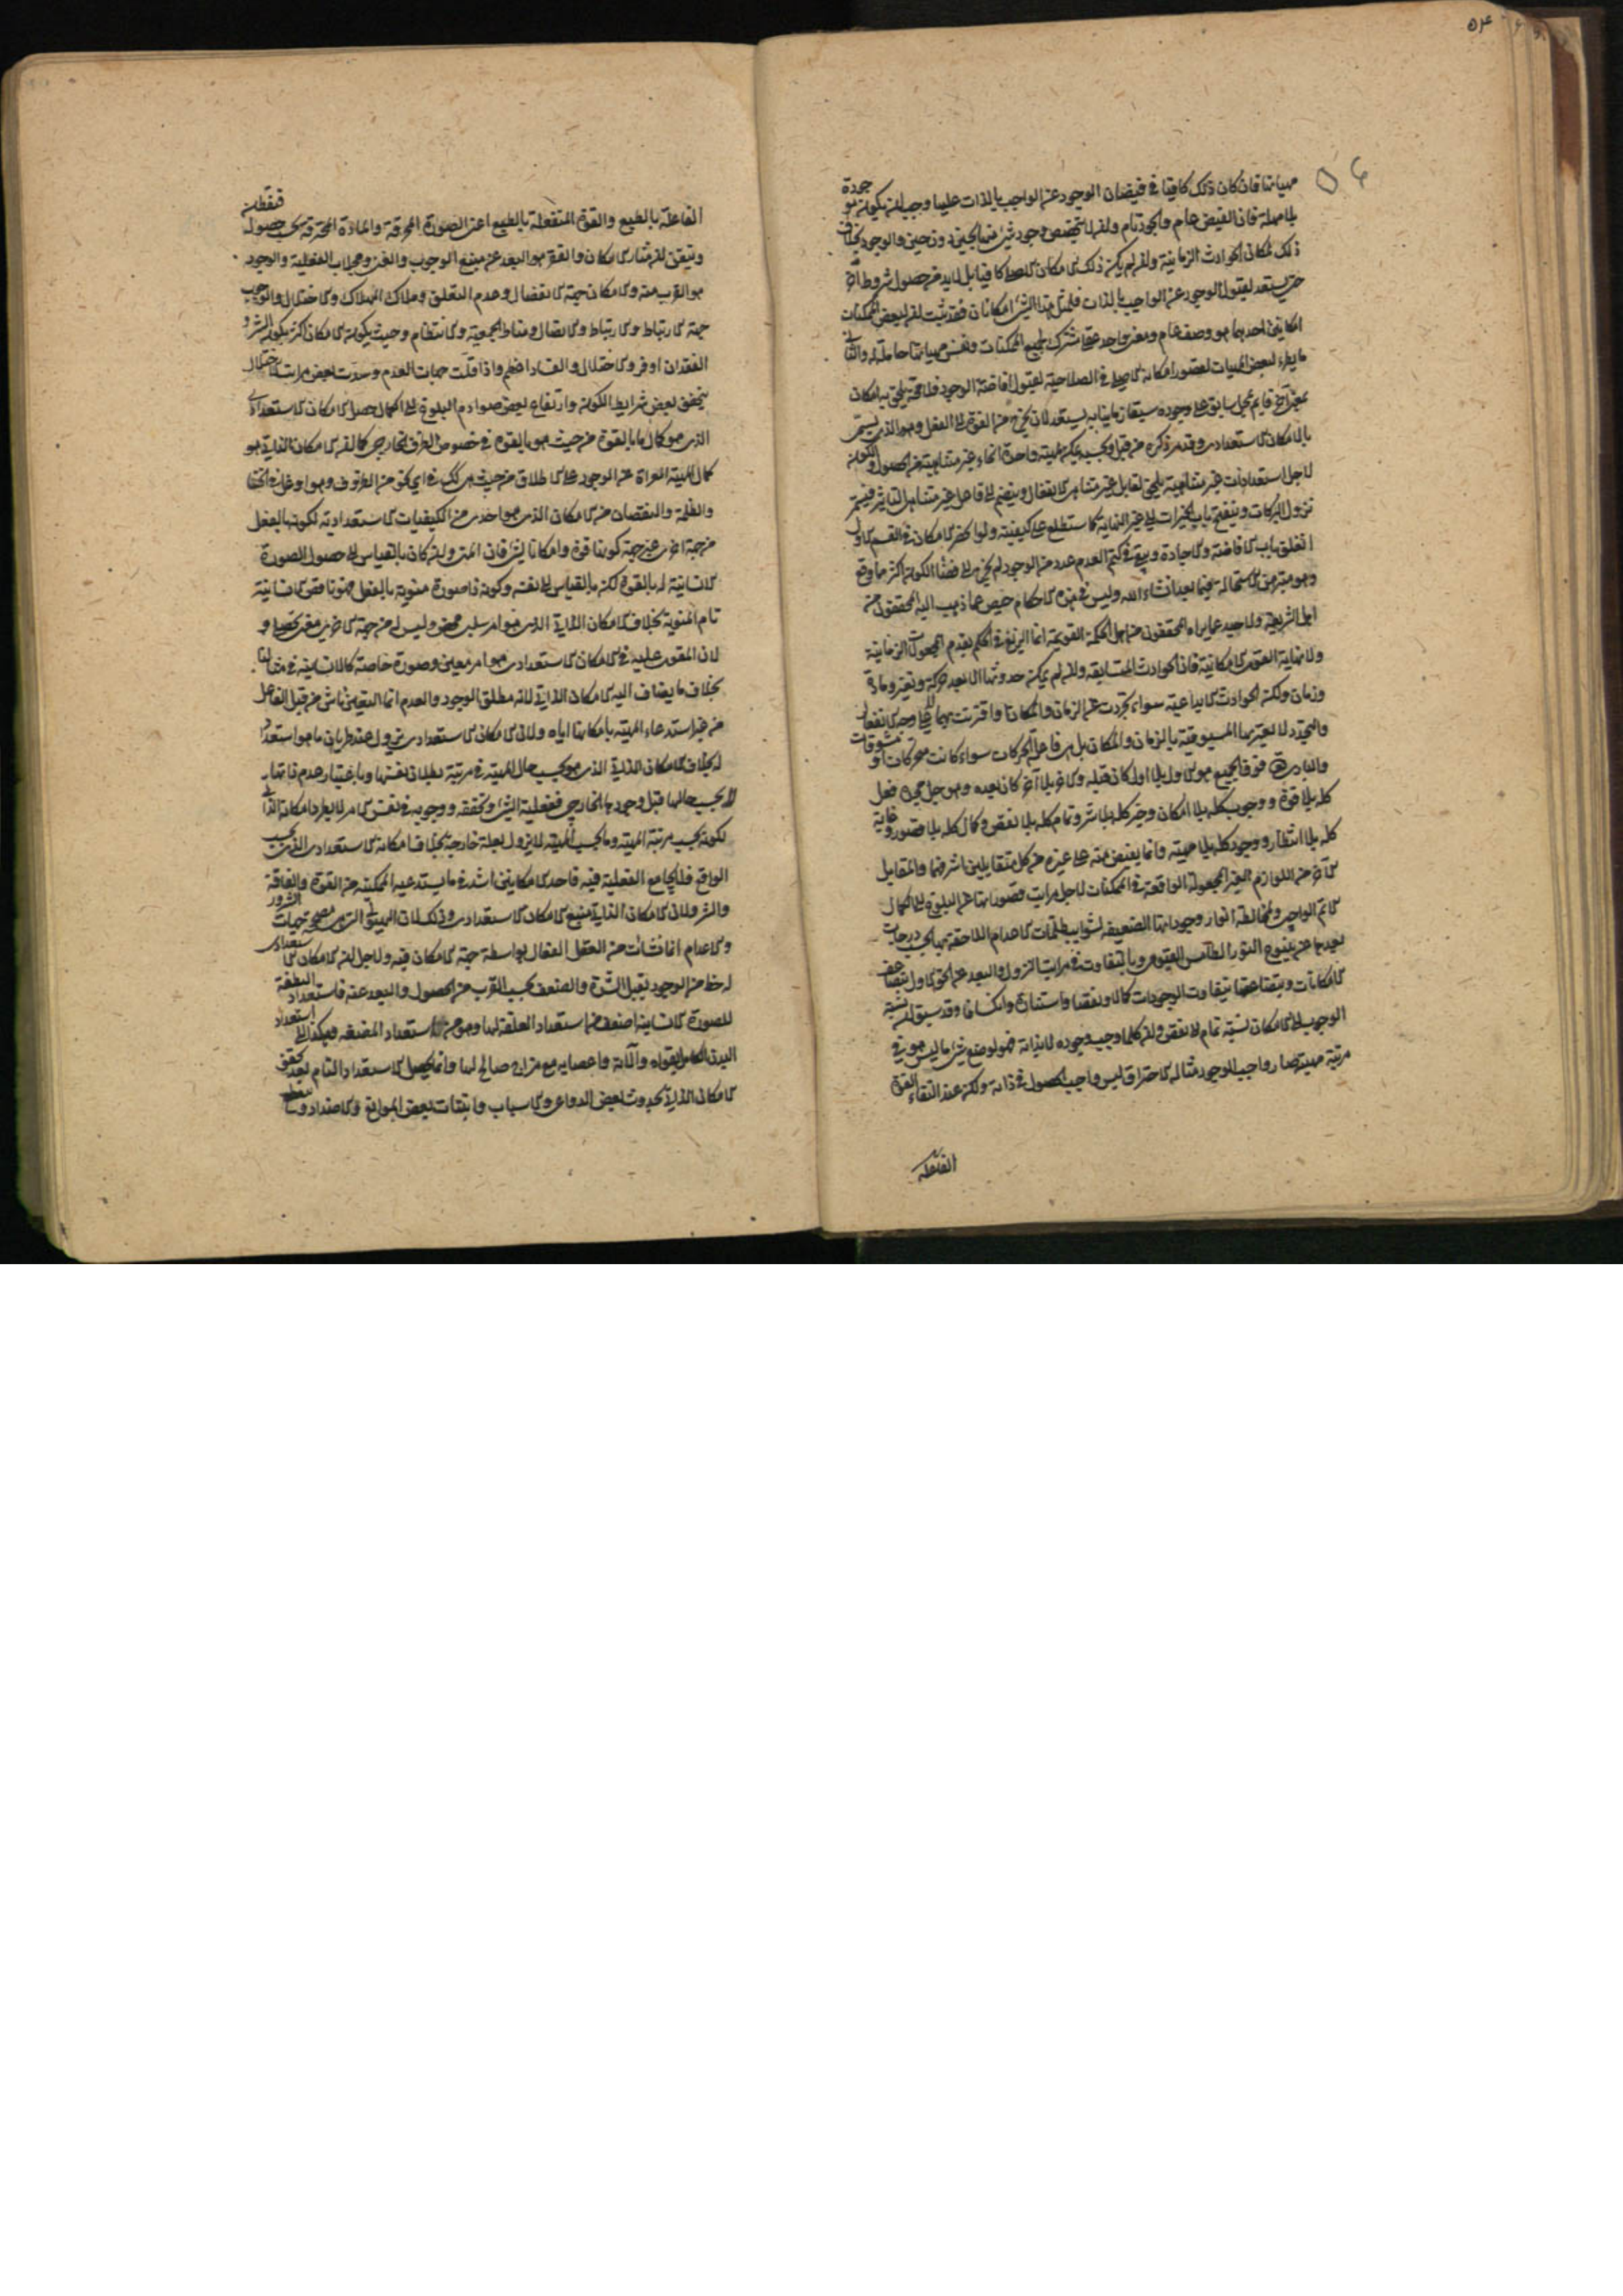 ۵۴
۵۶
مهياتها فان كان ذلك كافيا في فيضان الوجود عن الواجب بالذات عليها وجب ان يكون موجودة
بلا مهلة فان الفيض عام والجود تام وان لا يتخصص وجود شيء منها بحين دون حين والوجود بخلاف
ذلك لمكان الحوادث الزمانية وان لم يكن ذلك الامكان الاصلي كافيا بل لا بد من حصول شروط اخر
حتى يستعد لقبول الوجود عن الواجب بالذات فلمثل هذا الشيء امكانان فقد ثبت ان لبعض الممكنات
امكانين احدهما هو وصف عام ومعنى واحد عقلي مشترك لجميع الممكنات ونفس مهياتها حاملة له والثاني
ما يطرء لبعض المهيات لقصور امكانه الاصلي في الصلاحية لقبول افاضة الوجود فلا محة يلحق به امكان
بمعنى آخر قايم بمحل سابق على وجوده سبقا زمانيا به يستعد لان يخرج من القوة الى الفعل وهو الذي يسمى
بالامكان الاستعدادي وقد مر ذكره من قبل وبحسبه يمكن لمهية واحدة انحاء غير متناهية من الحصول والكون
لاجل استعدادات غير متناهية يلحق لقابل غير متناهي الانفعال وينضم الى فاعل غير متناهي التاثير فيستمر
نزول البركات وينفتح باب الخيرات الى غير النهاية كما ستطلع على كيفيته ولو انحصر الامكان في القسم الاول
انغلق باب الافاضة والاجادة وبقي في كتم العدم عدد من الوجود لم يخرج الى فضاء الكون اكثر مما وقع
وهو مبين الاستحالة فيما بعد انشاء الله وليس في هذه الاحكام حيص عما ذهب اليه المحققون من
اهل الشريعة ولا حيد عما يراه المحققون من اهل الحكمة القويمة انما الزيغ في الحكم بقدم المجعولات الزمانية
ولا نهاية القوى الامكانية فان الحوادث المتسابقه وان لم يمكن حدوثها الا بعد حركة وتغير ومادة
وزمان ولكن الحوادث الابداعية سواء تجردت عن الزمان والمكان او اقترنت بهما لا على وجه الانفعال
والتجدد لا يعتريها المسبوقية بالزمان والمكان بل هي فاعلة الحركات سواء كانت محركات او متشوقات
والباري فوق الجميع هو الاول بلا اول كان قبله والاخر بلا آخر كان بعده وهو جل مجده فعل
كله بلا قوة ووجوب كله بلا امكان وخير كله بلا شر وتمام كله بلا نقص وكمال كله بلا قصور وغاية
كله بلا انتظار ووجود كله بلا مهية وانما يفيض منه على غيره من كل متقابلين اشرفهما والمقابل
الآخر من اللوازم الغير المجعولة الواقعة في الممكنات لاجل مراتب قصوراتها عن البلوغ الى الكمال
الاتم الواجبي ولمخالطة انوار وجوداتها الضعيفه لشوايب ظلمات الاعدام اللاحقة بها بحسب درجات
بعدها عن ينبوع النور الطامس القيومي وبالتفاوت في مراتب النزول والبعد عن الحق الاول يتضاعف
الامكانات وبتضاعفها يتفاوت الوجودات كمالا ونقصا واستنارة وانكسافا وقد سبق ان نسبة
الوجوب الى الامكان نسبة تمام الى نقص وان كلما وجب وجوده لا بذاته فهو لو ضع شيء ما ليس هو في
مرتبة مهيته صار واجب الوجود مثاله الاحتراق ليس واجب الحصول في ذاته ولكن عند التقاء القوة
الفاعلة
الفاعلة بالطبع والقوة المنفعلة بالطبع اعني الصورة المحرقة والمادة المحترقة يجب حصوله فتفطن
وتيقن ان مثار الامكان والفقر هو البعد عن منبع الوجوب والغنى ومجلاب الفعلية والوجود
هو القرب منه والامكان جهة الانفصال وعدم التعلق وملاك الهلاك والاختلال والوجوب
جهة الارتباط والارتباط والاتصال ومناط الجمعية والانتظام وحيث يكون الامكان اكثر يكون الشر و
الفقدان اوفر والاختلال والفساد اعظم واذا قلت جهات العدم وسدت بعض مراتب الاختلال
بتحقق بعض شرايط الكون وارتفاع بعض صوادم البلوغ الى الكمال حصل الامكان الاستعدادي
الذي هو كمال ما بالقوة من حيث هو بالقوة في خصوص الظرف الخارجي كما ان الامكان الذاتي هو
كمال المهية المعراة عن الوجود على الاطلاق من حيث هي كك في اي نحو من الظروف وهو اوغل في الخفاء
والظلمة والنقصان من الامكان الذي هو احدى من الكيفيات الاستعدادية لكونها بالفعل
من جهة اخرى غير جهة كونها قوة وامكانا لشيء فان المنى وان كان بالقياس الى حصول الصورة
الانسانية له بالقوة لكن بالقياس الى نفسه وكونه ذا صورة منوية بالفعل فهو ناقص الانسانية
تام المنوية بخلاف الامكان الذاتي الذي هو امر سلبي محض وليس له من جهة اخرى معنى تحصلي و
لان المقوى عليه في الامكان الاستعدادي هو امر معين وصورة خاصة كالانسانية في مثالنا
بخلاف ما يضاف اليه الامكان الذاتي لانه مطلق الوجود والعدم انما التعين ناش من قبل الفاعل
من غير استدعاء المهية بامكانها اياه ولان الامكان الاستعدادي يزول عند طريان ما هو استعداد
له بخلاف الامكان الذاتي الذي هو بحسب حال المهية في مرتبة بطلان نفسها وباعتبار عدم ذاتها
لا بحسب حالها قبل وجودها الخارجي ففعلية الشيء وتحققه ووجوبه في نفس الامر لا يطرد امكانه الذاتي
لكونه بحسب مرتبة المهية وما بحسب المهية لا يزول بعلة خارجية بخلاف امكانه الاستعدادي الذي بحسب
الواقع فلا يجامع الفعلية فيه فاحد الامكانين اشد فيما يستدعيه الممكنية من القوة والفاقة
والشر ولان الامكان الذاتي منبع الامكان الاستعدادي وذلك لان الهيولى التي هي مصححة جهات الشرور
والاعدام انما نشأت من العقل الفعال بواسطة جهة الامكان فيه ولاجل ان الامكان الاستعدادي
له حظ من الوجود يقبل الشدة والضعف بحسب القرب من الحصول والبعد عنه فاستعداد النطفة
للصورة الانسانية اضعف من استعداد العلقة لها وهو من استعداد المضغه وهكذا الى استعداد
البدن الكامل بقواه وآلاته واعصابه مع مزاج صالح لها وانما يحصل الاستعداد التام بعد تحقق
الامكان الذاتي بحدوث بعض الدواعي والاسباب وانبتات بعض الموانع والاضداد